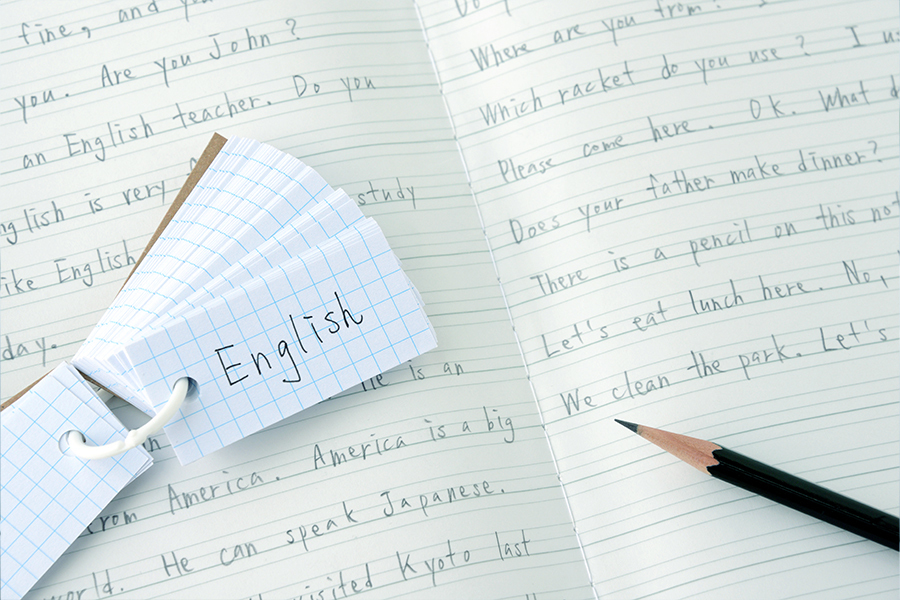 fine, and
you. Are you John?
an English teacher. Do you
is very
study
like English
day.
is an
America is a big
from America.
He can speak Japanese.
visited Kyoto last
English
Where are you from?
Which racket do you use? I
Please come here. OK. What
Does your father make dinner?
There is a pencil on this
Let's eat lunch here. No,
We clean the park. Let's